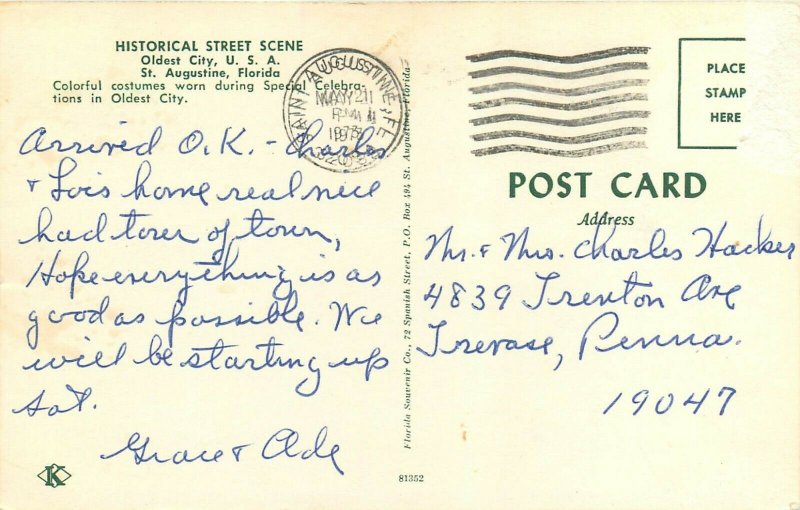 HISTORICAL STREET SCENE
Oldest City, U. S. A.
St. Augustine, Florida
Colorful costumes worn during Special Celebra-
tions in Oldest City.
Arrived O.K. - Charles
+ Lois home real nice
had tour of town,
Hope everything is as
good as possible. We
will be starting up
Sat.
Grace + Ade
K
Florida Souvenir Co., 72 Spanish Street, P.O. Box 494 St. Augustine, Florida
81352
SAINT AUGUSTINE, FL
MAY 21
PM
PLACE
STAMP
HERE
POST CARD
Address
Mr. + Mrs. Charles Hacker
4839 Trenton Ave
Trevose, Penna.
19047